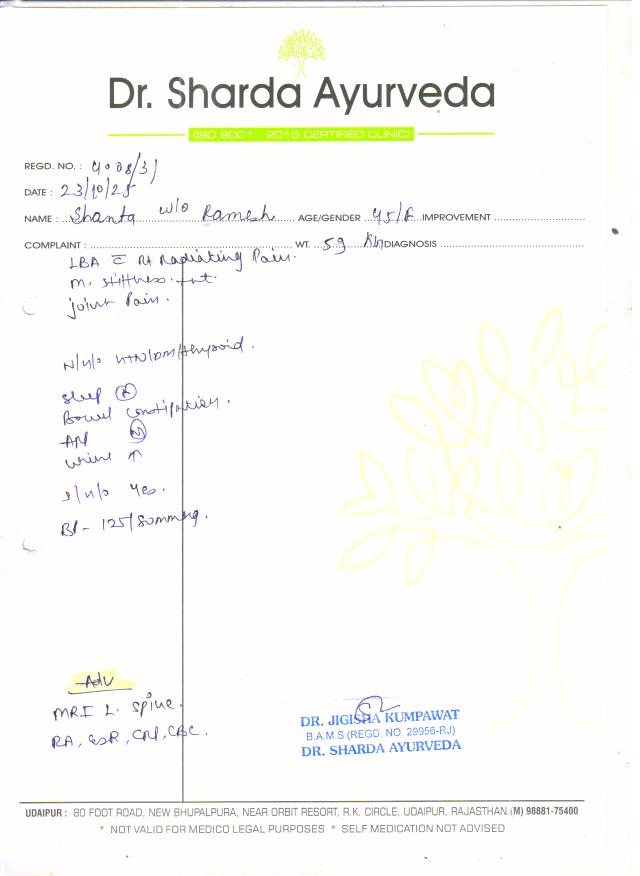 Dr. Sharda Ayurveda
(ISO 9001 : 2015 CERTIFIED CLINIC)
REGD. NO. : 4008/31
DATE : 23/10/25
NAME : Shanta w/o Ramesh AGE/GENDER 45/F IMPROVEMENT
COMPLAINT : WT. 59 Kg DIAGNOSIS
LBA c̄ Rt Radiating Pain.
M. stiffness. +nt.
joint Pain.
N/H/O HTN/DM/thyroid.
Sleep (N)
Bowel constipation.
App (N)
urine ↑
S/H/O Yes.
BP - 125/80mmHg.
Adv
MRI L. Spine.
RA, ESR, CRP, CBC.
DR. JIGISHA KUMPAWAT
B.A.M.S (REGD. NO. 29956-RJ)
DR. SHARDA AYURVEDA
UDAIPUR : 80 FOOT ROAD, NEW BHUPALPURA, NEAR ORBIT RESORT, R.K. CIRCLE, UDAIPUR, RAJASTHAN.(M) 98881-75400
* NOT VALID FOR MEDICO LEGAL PURPOSES * SELF MEDICATION NOT ADVISED